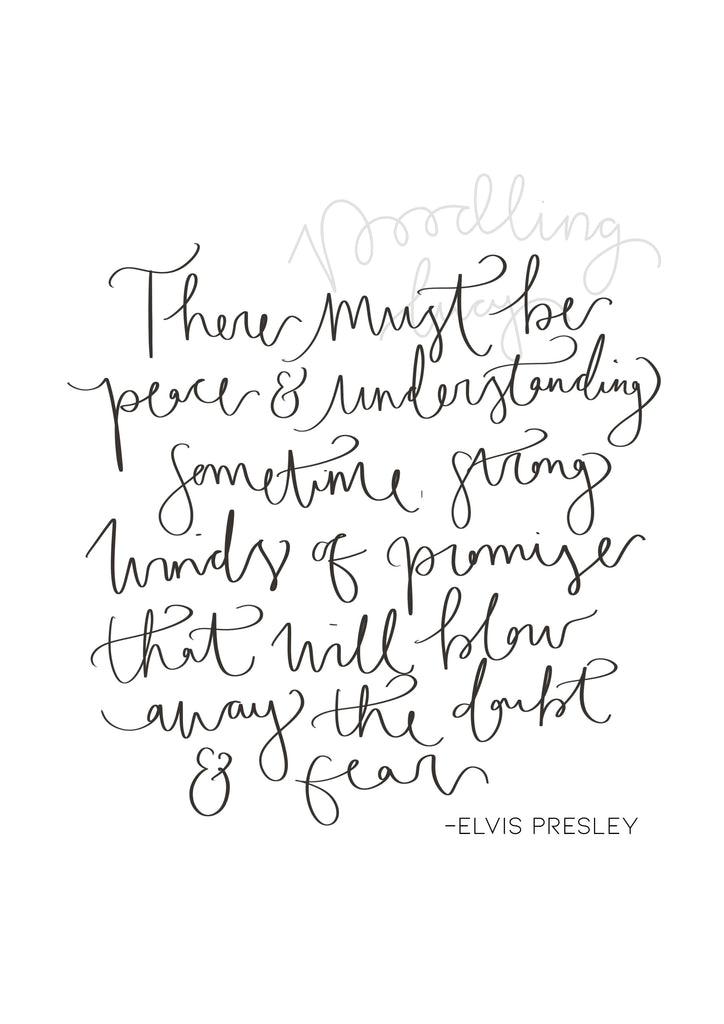 poodling
lucy
There must be
peace & understanding
sometime, strong
winds of promise
that will blow
away the doubt
& fear
-ELVIS PRESLEY